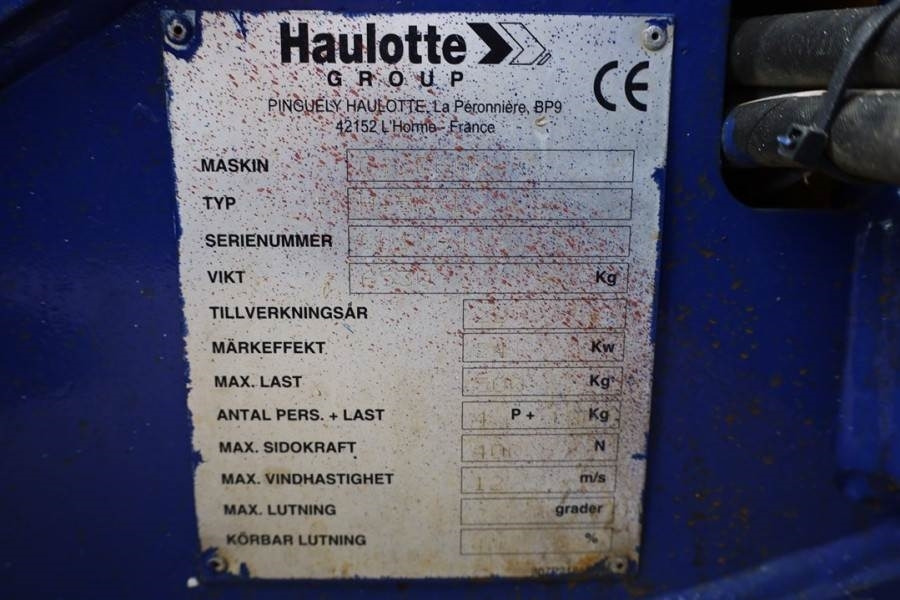 Haulotte
GROUP
PINGUELY HAULOTTE, La Péronnière, BP9
42152 L'Horme - France
CE
MASKIN
TYP
SERIENUMMER
VIKT Kg
TILLVERKNINGSÅR
MÄRKEFFEKT Kw
MAX. LAST Kg
ANTAL PERS. + LAST P + Kg
MAX. SIDOKRAFT N
MAX. VINDHASTIGHET m/s
MAX. LUTNING grader
KÖRBAR LUTNING %